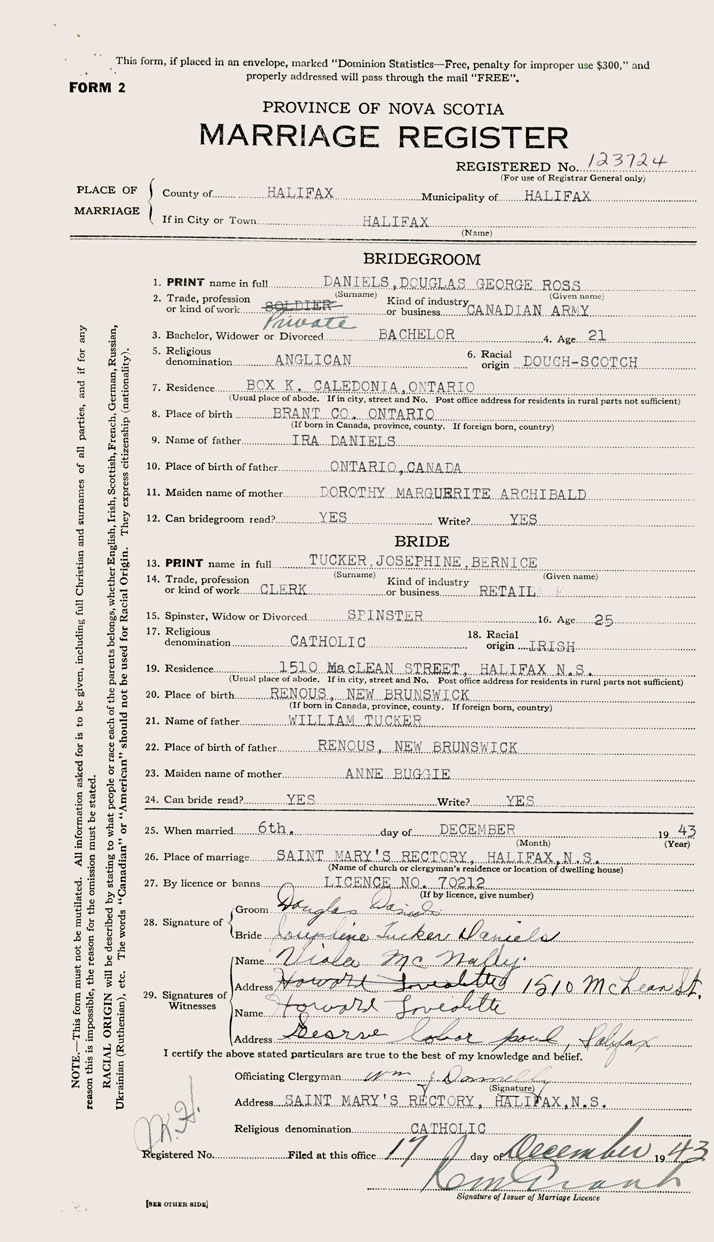 This form, if placed in an envelope, marked "Dominion Statistics—Free, penalty for improper use $300," and
properly addressed will pass through the mail "FREE".
FORM 2
PROVINCE OF NOVA SCOTIA
MARRIAGE REGISTER
REGISTERED No. 123724
(For use of Registrar General only)
PLACE OF MARRIAGE
County of HALIFAX Municipality of HALIFAX
If in City or Town HALIFAX
(Name)
BRIDEGROOM
1. PRINT name in full DANIELS, DOUGLAS GEORGE ROSS
(Surname) (Given name)
2. Trade, profession or kind of work SOLDIER Private Kind of industry or business CANADIAN ARMY
3. Bachelor, Widower or Divorced BACHELOR 4. Age 21
5. Religious denomination ANGLICAN 6. Racial origin DOUCH-SCOTCH
7. Residence BOX K. CALEDONIA, ONTARIO
(Usual place of abode. If in city, street and No. Post office address for residents in rural parts not sufficient)
8. Place of birth BRANT CO. ONTARIO
(If born in Canada, province, county. If foreign born, country)
9. Name of father IRA DANIELS
10. Place of birth of father ONTARIO, CANADA
11. Maiden name of mother DOROTHY MARGUERITE ARCHIBALD
12. Can bridegroom read? YES Write? YES
BRIDE
13. PRINT name in full TUCKER, JOSEPHINE, BERNICE
(Surname) (Given name)
14. Trade, profession or kind of work CLERK Kind of industry or business RETAIL
15. Spinster, Widow or Divorced SPINSTER 16. Age 25
17. Religious denomination CATHOLIC 18. Racial origin IRISH
19. Residence 1510 MacLEAN STREET, HALIFAX N.S.
(Usual place of abode. If in city, street and No. Post office address for residents in rural parts not sufficient)
20. Place of birth RENOUS, NEW BRUNSWICK
(If born in Canada, province, county. If foreign born, country)
21. Name of father WILLIAM TUCKER
22. Place of birth of father RENOUS, NEW BRUNSWICK
23. Maiden name of mother ANNE BUGGIE
24. Can bride read? YES Write? YES
25. When married 6th. day of DECEMBER 19 43
(Month) (Year)
26. Place of marriage SAINT MARY'S RECTORY, HALIFAX, N.S.
(Name of church or clergyman's residence or location of dwelling house)
27. By licence or banns LICENCE NO. 70212
(If by licence, give number)
28. Signature of
Groom Douglas Daniels
Bride Josephine Tucker Daniels
29. Signatures of Witnesses
Name Viola McNally
Address Howard 1510 McLean St.
Name Howard
Address Halifax
I certify the above stated particulars are true to the best of my knowledge and belief.
Officiating Clergyman Wm J Donnelly
(Signature)
Address SAINT MARY'S RECTORY, HALIFAX, N.S.
Religious denomination CATHOLIC
Registered No. Filed at this office 17 day of December 19 43
Signature of Issuer of Marriage Licence
[SEE OTHER SIDE]
NOTE.—This form must not be mutilated. All information asked for is to be given, including full Christian and surnames of all parties, and if for any
reason this is impossible, the reason for the omission must be stated.
RACIAL ORIGIN will be described by stating to what people or race each of the parents belongs, whether English, Irish, Scottish, French, German, Russian,
Ukrainian (Ruthenian), etc. The words "Canadian" or "American" should not be used for Racial Origin. They express citizenship (nationality).